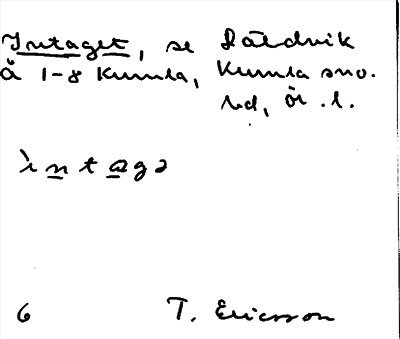 Intaget, se Råldvik
å 1-8 Kumla, Kumla sno.
hd, Ör. l.
ìntagə
6 T. Ericsson